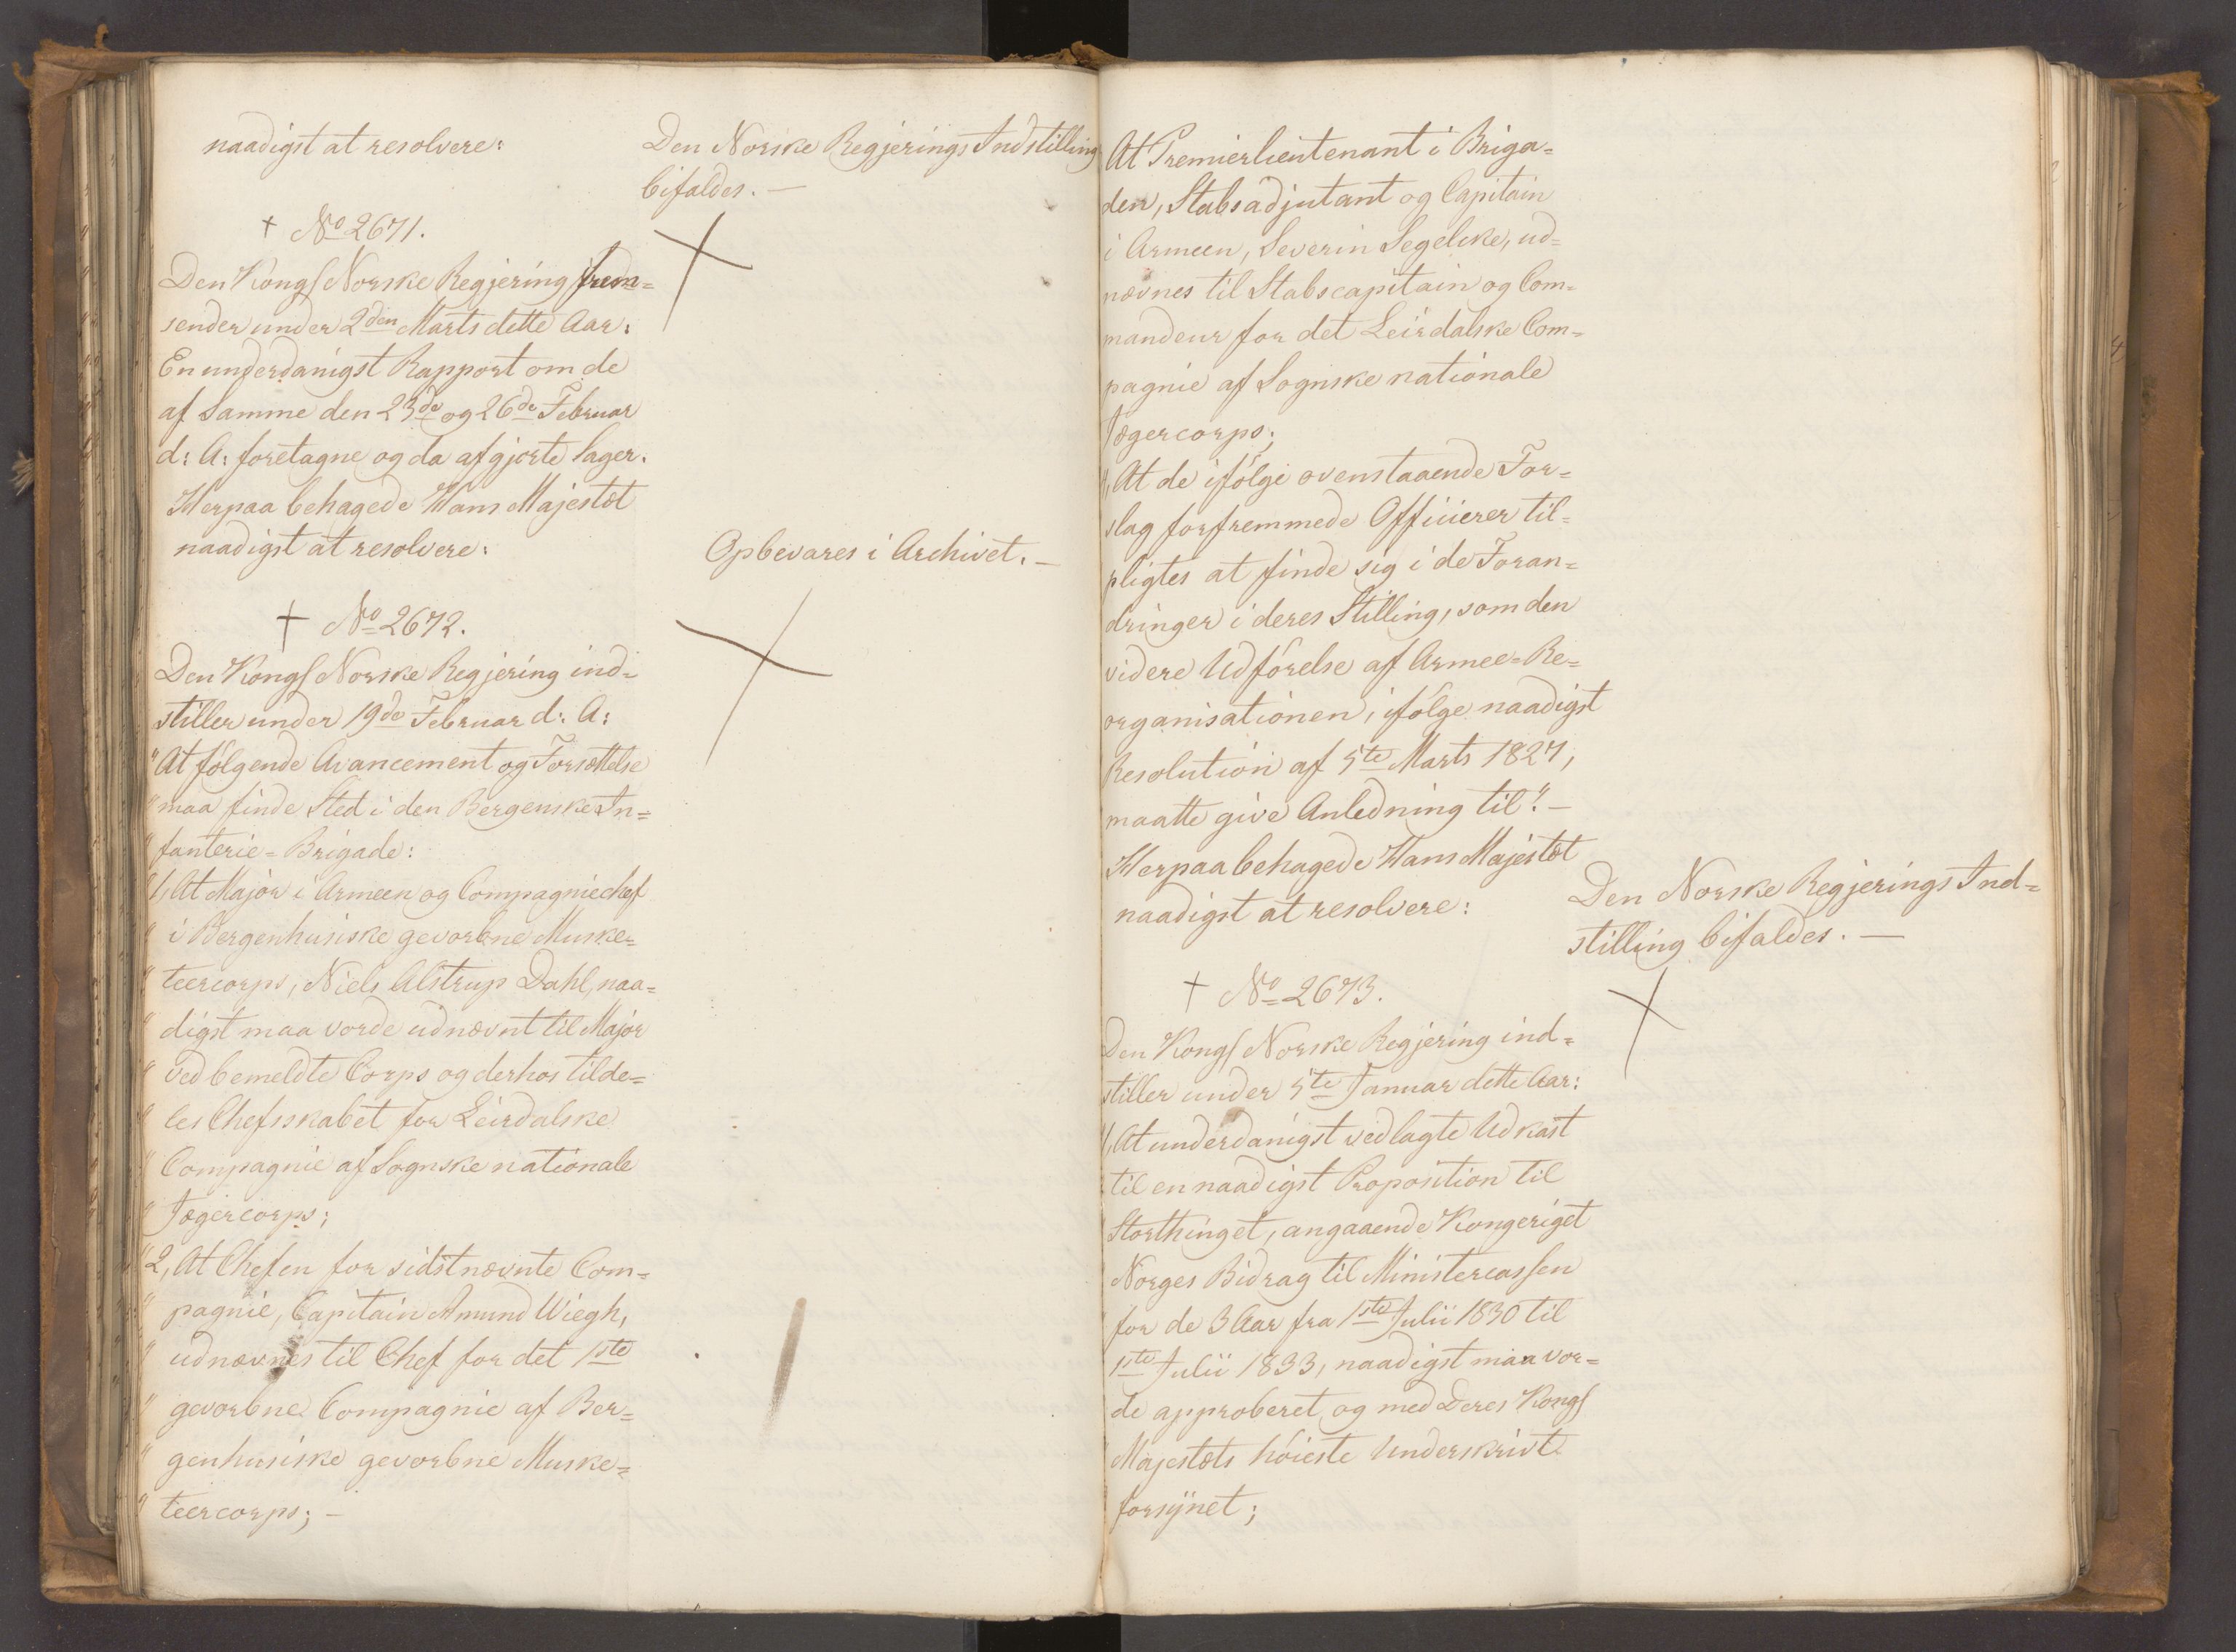 naadigst at resolvere:
Den Norske Regjerings Indstilling
bifaldes. —
† No 2671.
Den Kongl Norske Regjering frem=
sender under 2den Marts dette Aar:
En underdanigst Rapport om de
af Samme den 23de og 26de Februar
d: A: foretagne og da afgjorte Sager.
Herpaa behagede Hans Majestæt
naadigst at resolvere:
Opbevares i Archivet. —
† No 2672.
Den Kongl Norske Regjering ind=
stiller under 19de Februar d: A:
"At følgende Avancement og Forsættelse
" maa finde Sted i den Bergenske In=
" fanterie=Brigade:
" 1, At Major i Armeen og Compagniechef
" i Bergenhusiske gevorbne Muske=
" teercorps, Niels Alstrup Dahl, naa=
" digst maa vorde udnævnt til Major
" ved bemeldte Corps og derhos tilde=
" les Chefsskabet for Leirdalske
" Compagnie af Sognske nationale
" Jægercorps;
" 2, At Chefen for sidstnævnte Com=
" pagnie, Capitain Amund Wiegh,
" udnævnes til Chef for det 1ste
" gevorbne Compagnie af Ber=
" genhusiske gevorbne Muske=
" teercorps; —
At Premierlieutenant i Briga=
den, Stabsadjutant og Capitain
i Armeen, Severin Segelcke, ud=
nævnes til Stabscapitain og Com=
mandeur for det Leirdalske Com=
pagnie af Sognske nationale
Jægercorps;
, At de ifølge ovenstaaende For=
slag forfremmede Officierer til=
pligtes at finde sig i de Foran=
dringer i deres Stilling, som den
videre Udførelse af Armee=Re=
organisationen, ifølge naadigst
Resolution af 5te Marts 1827,
maatte give Anledning til". —
Herpaa behagede Hans Majestæt
naadigst at resolvere:
Den Norske Regjerings Ind=
stilling bifaldes. —
† No 2673.
Den Kongl Norske Regjering ind=
stiller under 5te Januar dette Aar:
1, At underdanigst vedlagte Udkast
til en naadigst Proposition til
Storthinget, angaaende Kongeriget
Norges Bidrag til Ministercassen
for de 3 Aar fra 1ste Julii 1830 til
1ste Julii 1833, naadigst maa vor=
de approberet og med Deres Kongl
Majestæts høieste Underskrivt
forsynet;